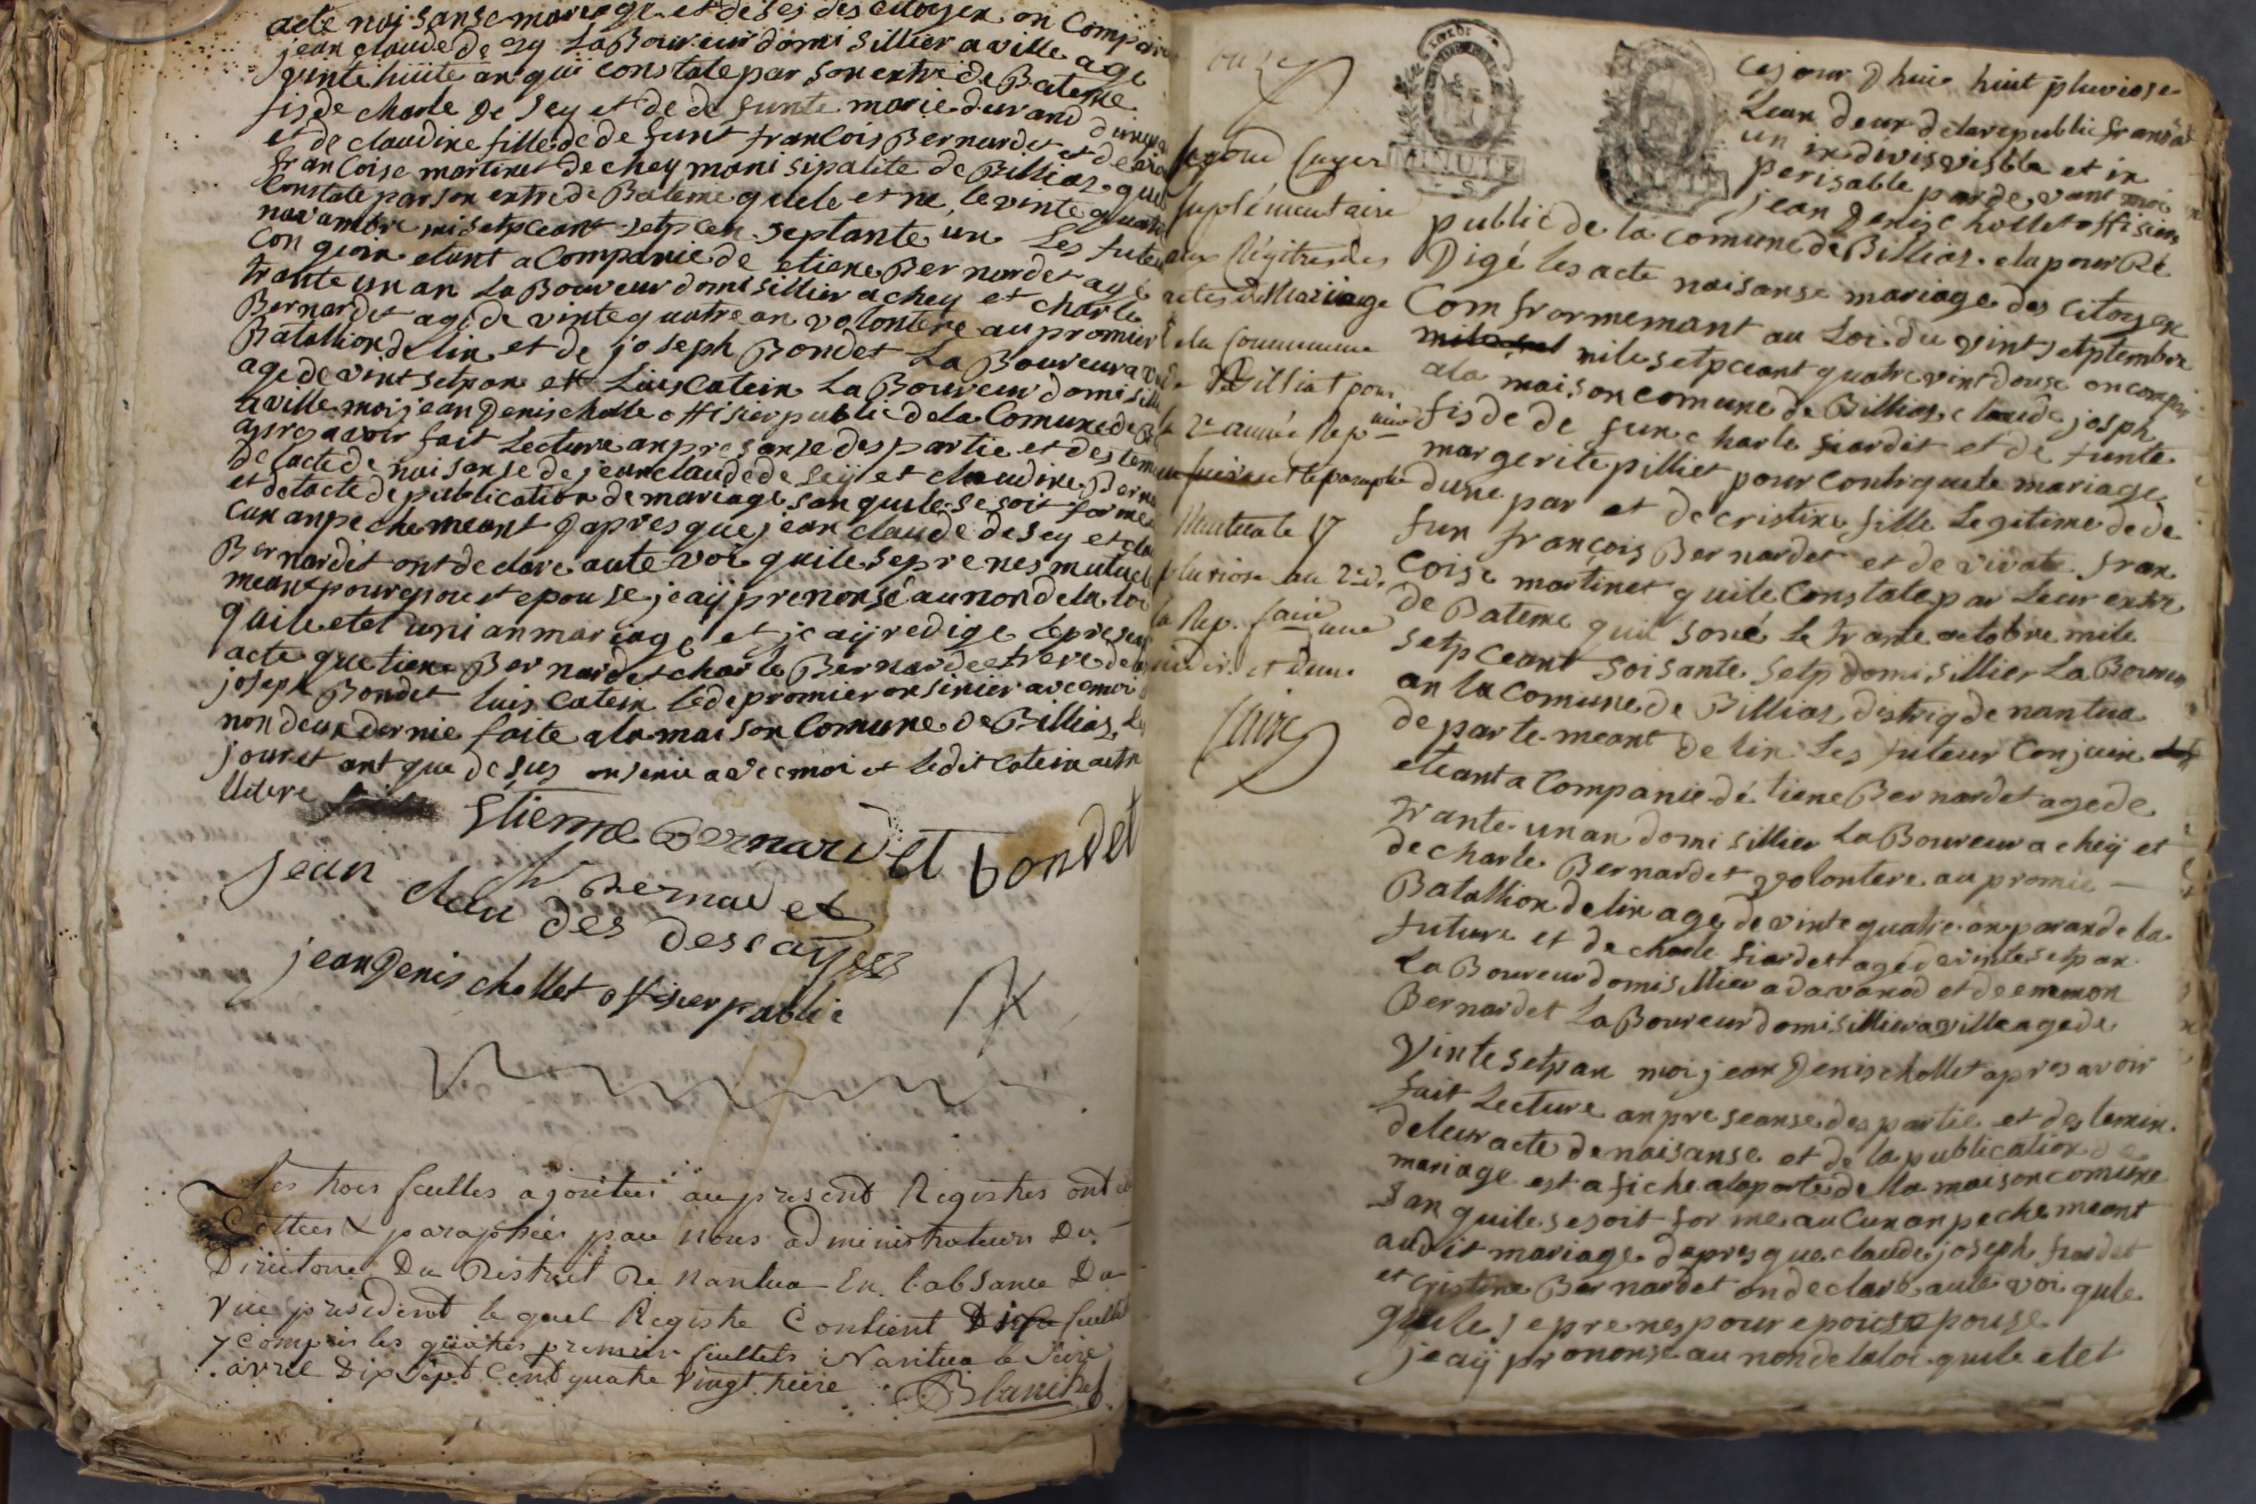 acte naisanse mariage et deses des citoyen on Compar
jean claude de sey LaBoureur domisillier a ville age
trinte huite an qui constate par son extre de Bateme
fis de charle de sey et de defunte marie durand dune
et de claudine fille de defunt francois Bernardet et de
francoise martinet de chey manisipalite de Billiaz que
constate par son extre de Bateme quele et ne le vinte quatre
novambre mil setpceant setpcen septante un Les futeur
Conjoin etant a Companie de etiene Bernardet age
trante un an LaBoureur domisillier a chey et charle
Bernardet age de vinte quatre an volontere au promier
Batallion de lin et de joseph Bondet La Boureur a
age de vint setp an et Luis catein La Boureur domisille
a ville moi jean Denis chollet offisier public de la Comune de
apres avoir fait Lecture an presanse des partie et des temein
de lacte de naisanse de jean claude de sey et claudine Berna
et de lacte de publication de mariage san quile se soit forme
cun anpechemeant d apres que jean claude de sey et cla
Bernardet ont declare aute voi quile se prenes mutuel
meant pour epou et epouse je aij prenonse au non de la loi
quile etet uni an mariage et je aij redige le present
acte que tiene Bernardet charle Bernardet frere de
joseph Bondet luis catein le de promier on sinier avec moi
non deux dernie faite a la maison Comune de Billiaz Le
jour et ant que desus on senie avec moi et le dit catein
litere
Etienne Bernardet bondet
jean clau des dessaÿes
ch Bernardet
jean Denis chollet offisier public
Les trois feuilles ajoutées au présent Registres ont été
Cottées & paraphées par nous administrateurs Du
Directoire Du District De Nantua En l'absance Du
Vice président le quel Registre Contient Dix feuillets
y compris les quatres premiers feuillets Nantua le seize
avril Dix Sept Cent quatre Vingt treize Blanchet
onze
Second Cayer
suplémentaire
aux Régitres des
actes de Mariage
de la Commune
de Billiat pour
la 2e année Rep.
Nantua le 17
pluviose an 2e de
la Rep. faire une
indiv. et dune
MINUTE
Ces jour d huie huit pluviose
Lean deux de la republic fransaise
un indivisvisble et in
perisable par de vant moi
jean Denis chollet offisier
public de la comune de Billiaz ela pour Ré
Digé les acte naisanse mariage des citoyen
Comfrormemant au Loi du vint setptembre
mile setpceant quatrevint douse on compar
ala maison comune de Billiaz claude josph
fis de defun charle fiardet et de funte
margerite pilliet pour contraquete mariage
dune par et de cristine fille Legitime de de
fun françois Bernardet et de vivate fran
Coise martinet quile Constate par Leur extre
de Bateme quil soné Le trante octobre mile
setpceant soisante setp domisillier La Boureur
an la comune de Billiaz distriq de nantua
departemeant de lin Les futeur Conjoin
eteant a Companie dé tiene Bernardet age de
trante un an domisillier La Boureur a cheij et
de charle Bernardet volontere au promie
Batallion de lin age de vinte quatre an paran de la
future et de charle fiardet agé de vinte setp an
La Boureur domisillier a davanod et de enemon
Bernardet La Boureur domisillier a ville age de
Vinte setp an moi jean Denis chollet apres avoir
fait Lecture an preseanse des partie et des temin
de leur acte de naisanse et de la publication de
mariage est afiche a la porte de la maison comune
San quile se soit forme au Cun an pechemeant
audit mariage d apres que claude joseph fiardet
et cristine Bernardet on declare aute voi qule
quile se prenes pour epouse epouse
je aij prononse au non de la loi quile etet